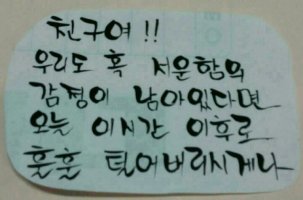 친구여 !!
우리도 혹 서운함의
감정이 남아있다면
오늘 이시간 이후로
훌훌 털어버리시게나